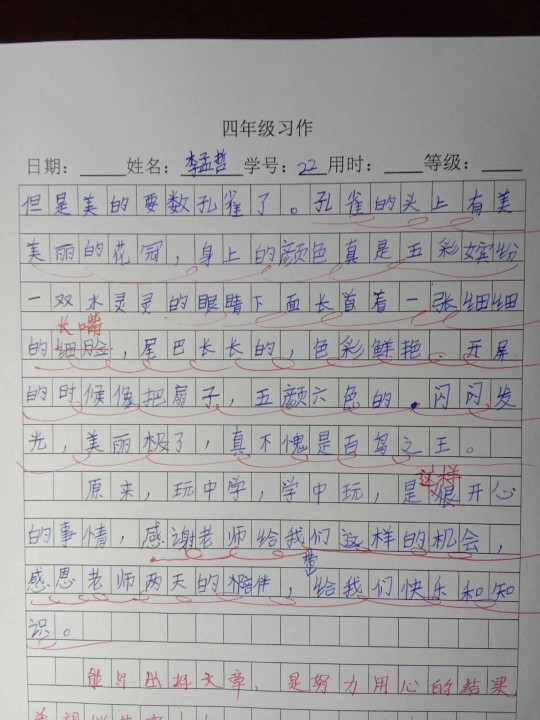 四年级习作
日期：姓名：李孟哲学号：22用时：等级：
但是美的要数孔雀了。孔雀的头上有美
美丽的花冠，身上的颜色真是五彩缤纷
一双水灵灵的眼睛下面长着着一张细细
长嘴
的细脸，尾巴长长的，色彩鲜艳．开屏
的时候像把扇子，五颜六色的，闪闪发
光，美丽极了，真不愧是百鸟之王。
这样
原来，玩中学，学中玩，是很开心
的事情，感谢老师给我们这样的机会，
带
感恩老师两天的陪伴，给我们快乐和知
识。
能写出好文章，是努力用心的结果